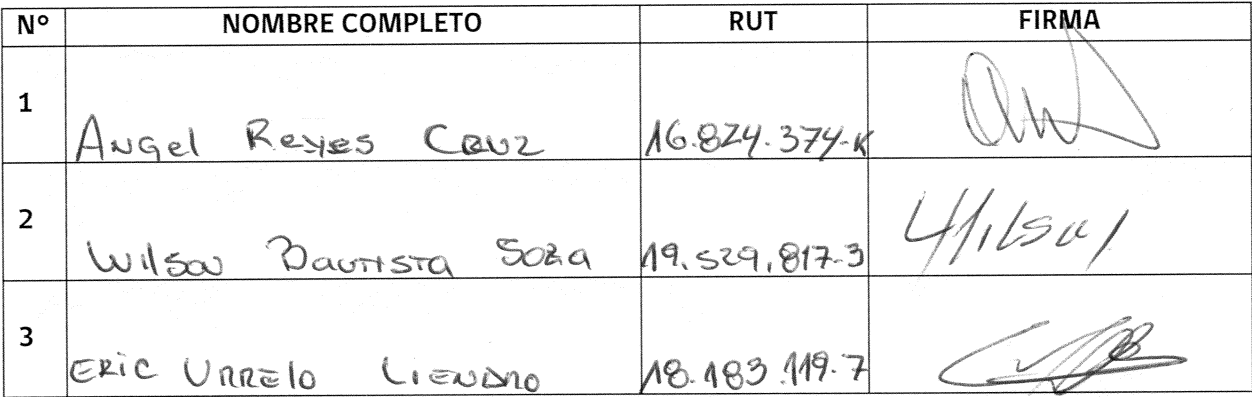 N° NOMBRE COMPLETO RUT FIRMA
1 Angel Reyes Cruz 16.824.374-K
2 Wilson Bautista Soza 19.529.817-3 Wilson
3 Eric Urrelo Liendro 18.183.119-7